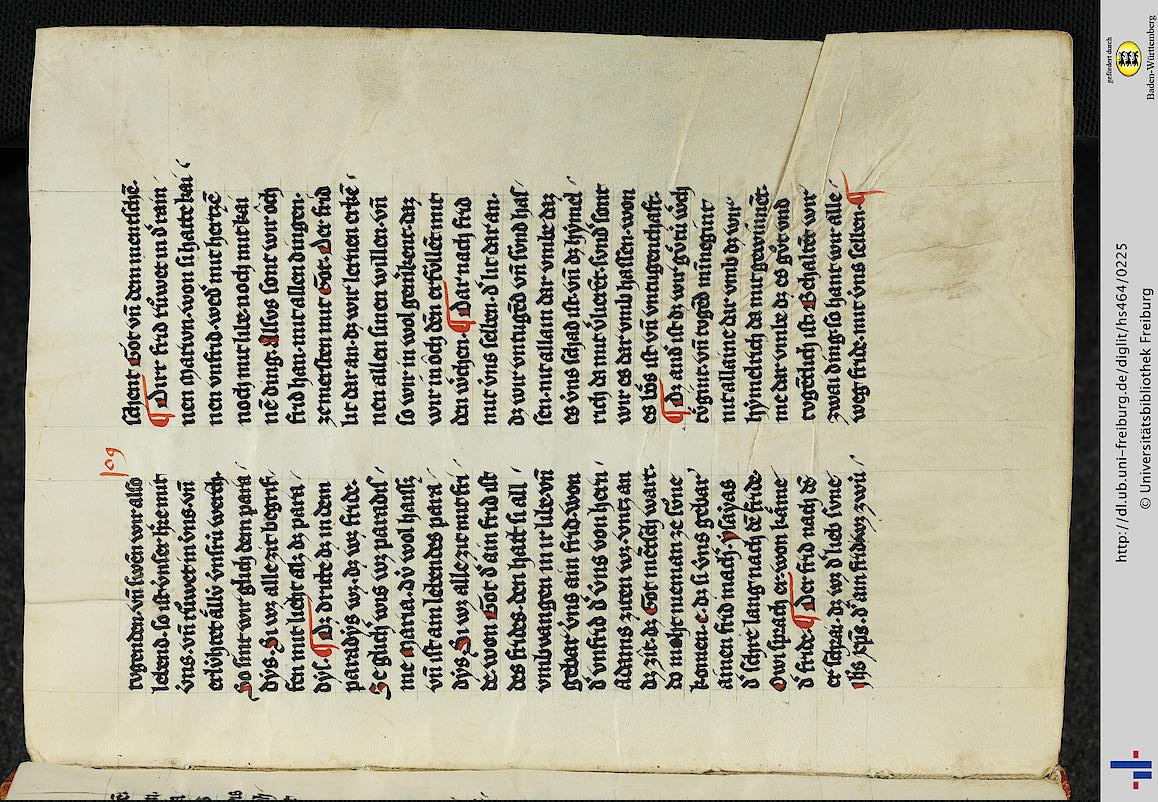 109
tvgenden. vn̄ swen wir also
lebend. so ist vnser h̄re mit
vns. vn̄ růwet in vns. vn̄
erlv́htet ällv́ vnsrú werch.
So sint wir glich dem para/
dys. Si wz alle zit begrif/
fen mit lieht alz dz para/
dys. ¶ Dz dritte dz in dem
paradys wz. dz wz fride.
Se glich wis wz paradis/
me Maria. dú wol haissz
vn̄ ist ain lebendes para/
dys. Si wz alle zit mit fri/
de. won Got d' ain frid ist
des frides. den hatt si all/
vmbvangen in ir libe. vn̄
gebar vns ain frid. won
d' vnfrid d' vns von hern/
Adams ziten wz. vntz an
dz zit. dz Got mēsch wart.
do moht nieman ze sůne
komen. e. dz si vns gebar'
ainen frid nach. ysayas
d' schre lang nach dē fride.
Owi sprach er. won käme
d' fride. ¶ Der frid nach dē
er schrai. dz wz d' lieb sune
ihs xp̄s. d' ain frid wz zwi/
schent Got vn̄ den mentschē.
¶ Dirr frid růwet in d' rain/
nen marien. won si hatte kai/
nen vnfrid. wed' mit hertzē
noch mit libe. noch mit kai
nē ding. Alsvs sont wir och
frid han. mit allen dingen.
ze merst̄en mit Got. Der frid
lit dar an. dz wir lernen erkē/
nen allen sinen willen. vn̄
so wir in wol erkikent. daz
wir in och dēn erfv́llēt mit
den w̓chen. ¶ Dar nach frid
mit vns selben. d' lit dar an.
dz wir vntugēd vn̄ sv́nd has/
sen. nit allain dar vmbe daz
es vns schad ist. vn̄ dz hymel/
rich da mit v'lierēt. svnd' sont
wir es dar vmb hassen. won
es bös ist vn̄ vneugenthaft.
¶ Dz and' ist dz wir gv̊tú w̓ch
tv́gint. vn̄ tvgēd minnegint/
nit allaine dar vmb dz wir
hymelrich da mit gewinnēt.
me dar vmbe dz es gv̊t vnd
tvgēdlich ist. Behaltēt wir
zwai ding. so hant wir alle/
weg fride. mit vns selben. ¶
http://dl.ub.uni-freiburg.de/diglit/hs464/0225
© Universitätsbibliothek Freiburg
gefördert durch
Baden-Württemberg